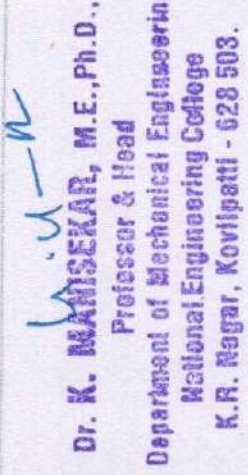 Dr. K. MANISEKAR, M.E.,Ph.D.,
Professor & Head
Department of Mechanical Engineerin
National Engineering College
K.R. Nagar, Kovilpatti - 628 503.